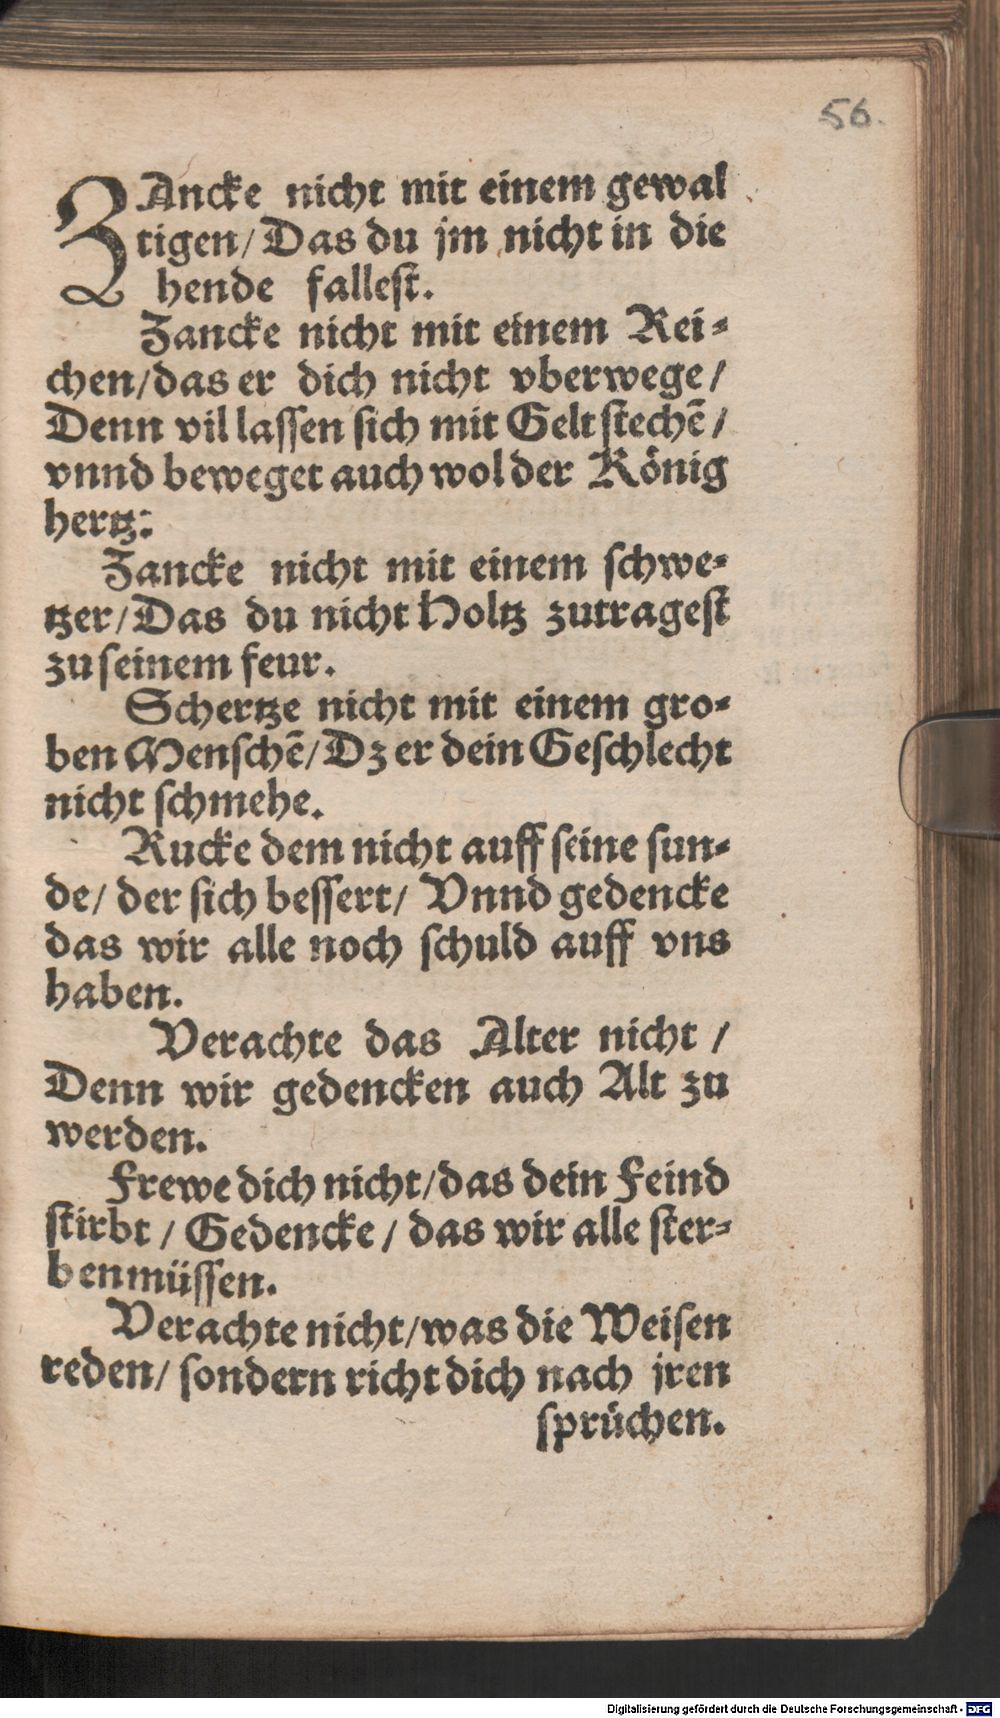 56.
ZAncke nicht mit einem gewal
tigen/ Das du jm nicht in die
hende fallest.
Zancke nicht mit einem Rei-
chen/das er dich nicht vberwege/
Denn vil lassen sich mit Gelt stechē/
vnnd beweget auch wol der König
hertz:
Zancke nicht mit einem schwe-
tzer/Das du nicht Holtz zutragest
zu seinem feur.
Schertze nicht mit einem gro-
ben Menschē/Dz er dein Geschlecht
nicht schmehe.
Rucke dem nicht auff seine sun-
de/ der sich bessert/ Vnnd gedencke
das wir alle noch schuld auff vns
haben.
Verachte das Alter nicht /
Denn wir gedencken auch Alt zu
werden.
Frewe dich nicht/das dein Feind
stirbt / Gedencke / das wir alle ster-
ben müssen.
Verachte nicht/was die Weisen
reden/ sondern richt dich nach jren
sprüchen.
Digitalisierung gefördert durch die Deutsche Forschungsgemeinschaft - DFG